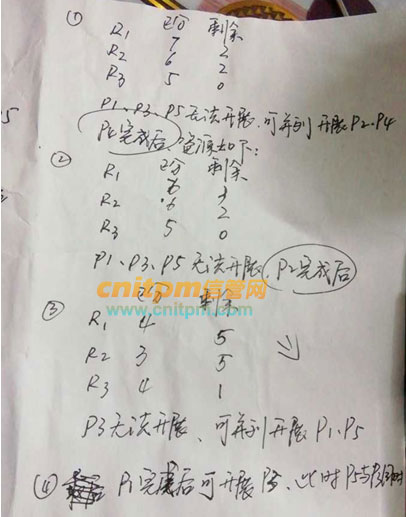 ①
已分 剩余
R1 7 2
R2 6 2
R3 5 0
P1、P3、P5无法开展，可并列开展P2、P4
P4完成后，资源如下：
②
已分 剩余
R1 6
R2 6 2
R3 5 0
P1、P3、P5无法开展，P2完成后
cnitpm信管网
www.cnitpm.com
③ 已分 剩余
R1 4 5
R2 3 5
R3 4 1
P3无法开展、可并列开展P1、P5
④ P1完成后可开展P3、此时P5与P3
5